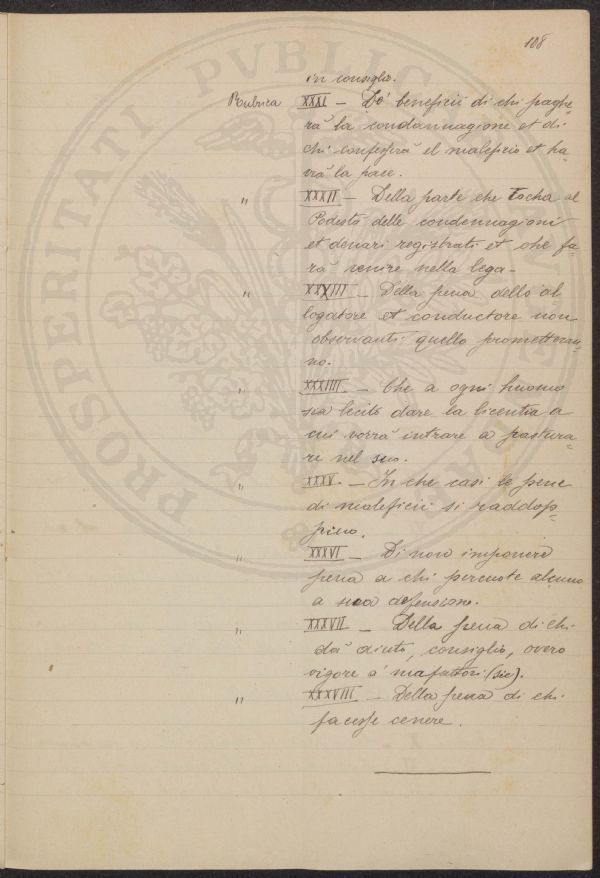 108
in consiglio.
Rubrica XXXI – De' beneficii di chi paghe-
rà la condannagione et di
chi confesserà el maleficio et ha-
vrà la pace.
" XXXII – Della parte che tocha al
Podestà delle condennagioni
et denari registrati et che fa-
rà venire nella lega –
" XXXIII – Della pena dello al
logatore et conductore non
observanti quello prometteran-
no.
" XXXIIII – Che a ogni huomo
sia licito dare la licentia a
cui vorrà intrare a pastura-
re nel suo.
" XXXV. – In che casi le pene
di maleficii si raddop-
pino.
" XXXVI – Di non imponere
pena a chi percuote alcuno
a sua defensione.
" XXXVII – Della pena di chi
dà aiuto, consiglio, overo
vigore a' mafattori (sic).
" XXXVIII – Della pena di chi
facesse cenere.
PROSPERITATI PVBLICAE